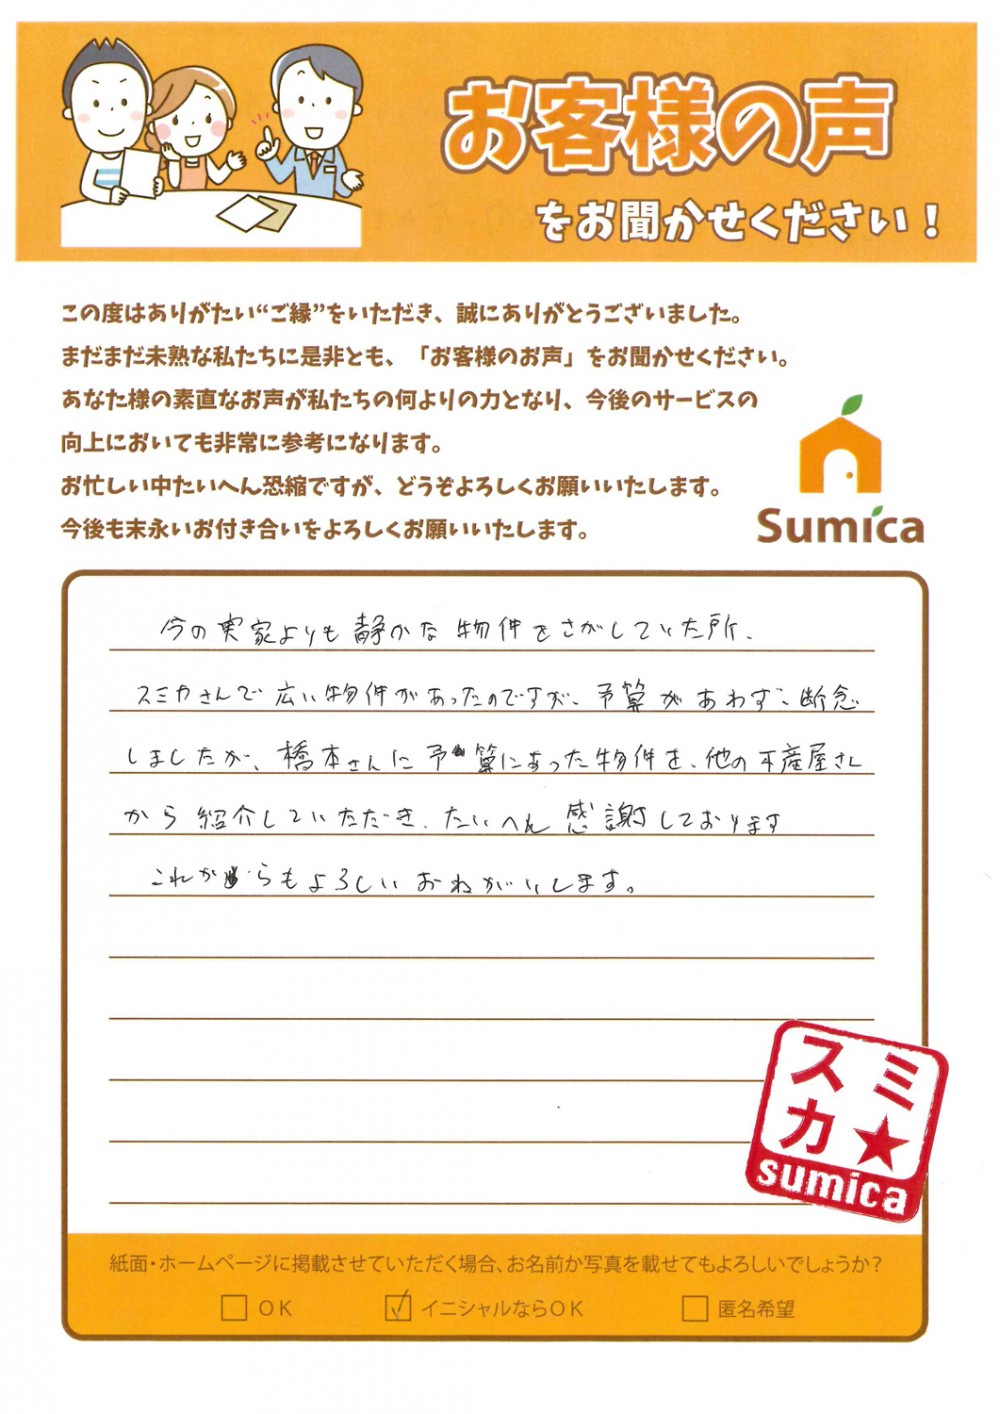 お客様の声
をお聞かせください！
この度はありがたい“ご縁”をいただき、誠にありがとうございました。
まだまだ未熟な私たちに是非とも、「お客様のお声」をお聞かせください。
あなた様の素直なお声が私たちの何よりの力となり、今後のサービスの
向上においても非常に参考になります。
お忙しい中たいへん恐縮ですが、どうぞよろしくお願いいたします。
今後も末永いお付き合いをよろしくお願いいたします。
Sumica
今の実家よりも静かな物件をさがしていた所、
スミカさんで広い物件があったのですが、予算があわず、断念
しましたが、橋本さんに予算にあった物件を、他の不産屋さん
から紹介していただき、たいへん感謝しております
これからもよろしいおねがいします。
スミ
カ★
sumica
紙面・ホームページに掲載させていただく場合、お名前か写真を載せてもよろしいでしょうか？
OK
イニシャルならOK
匿名希望